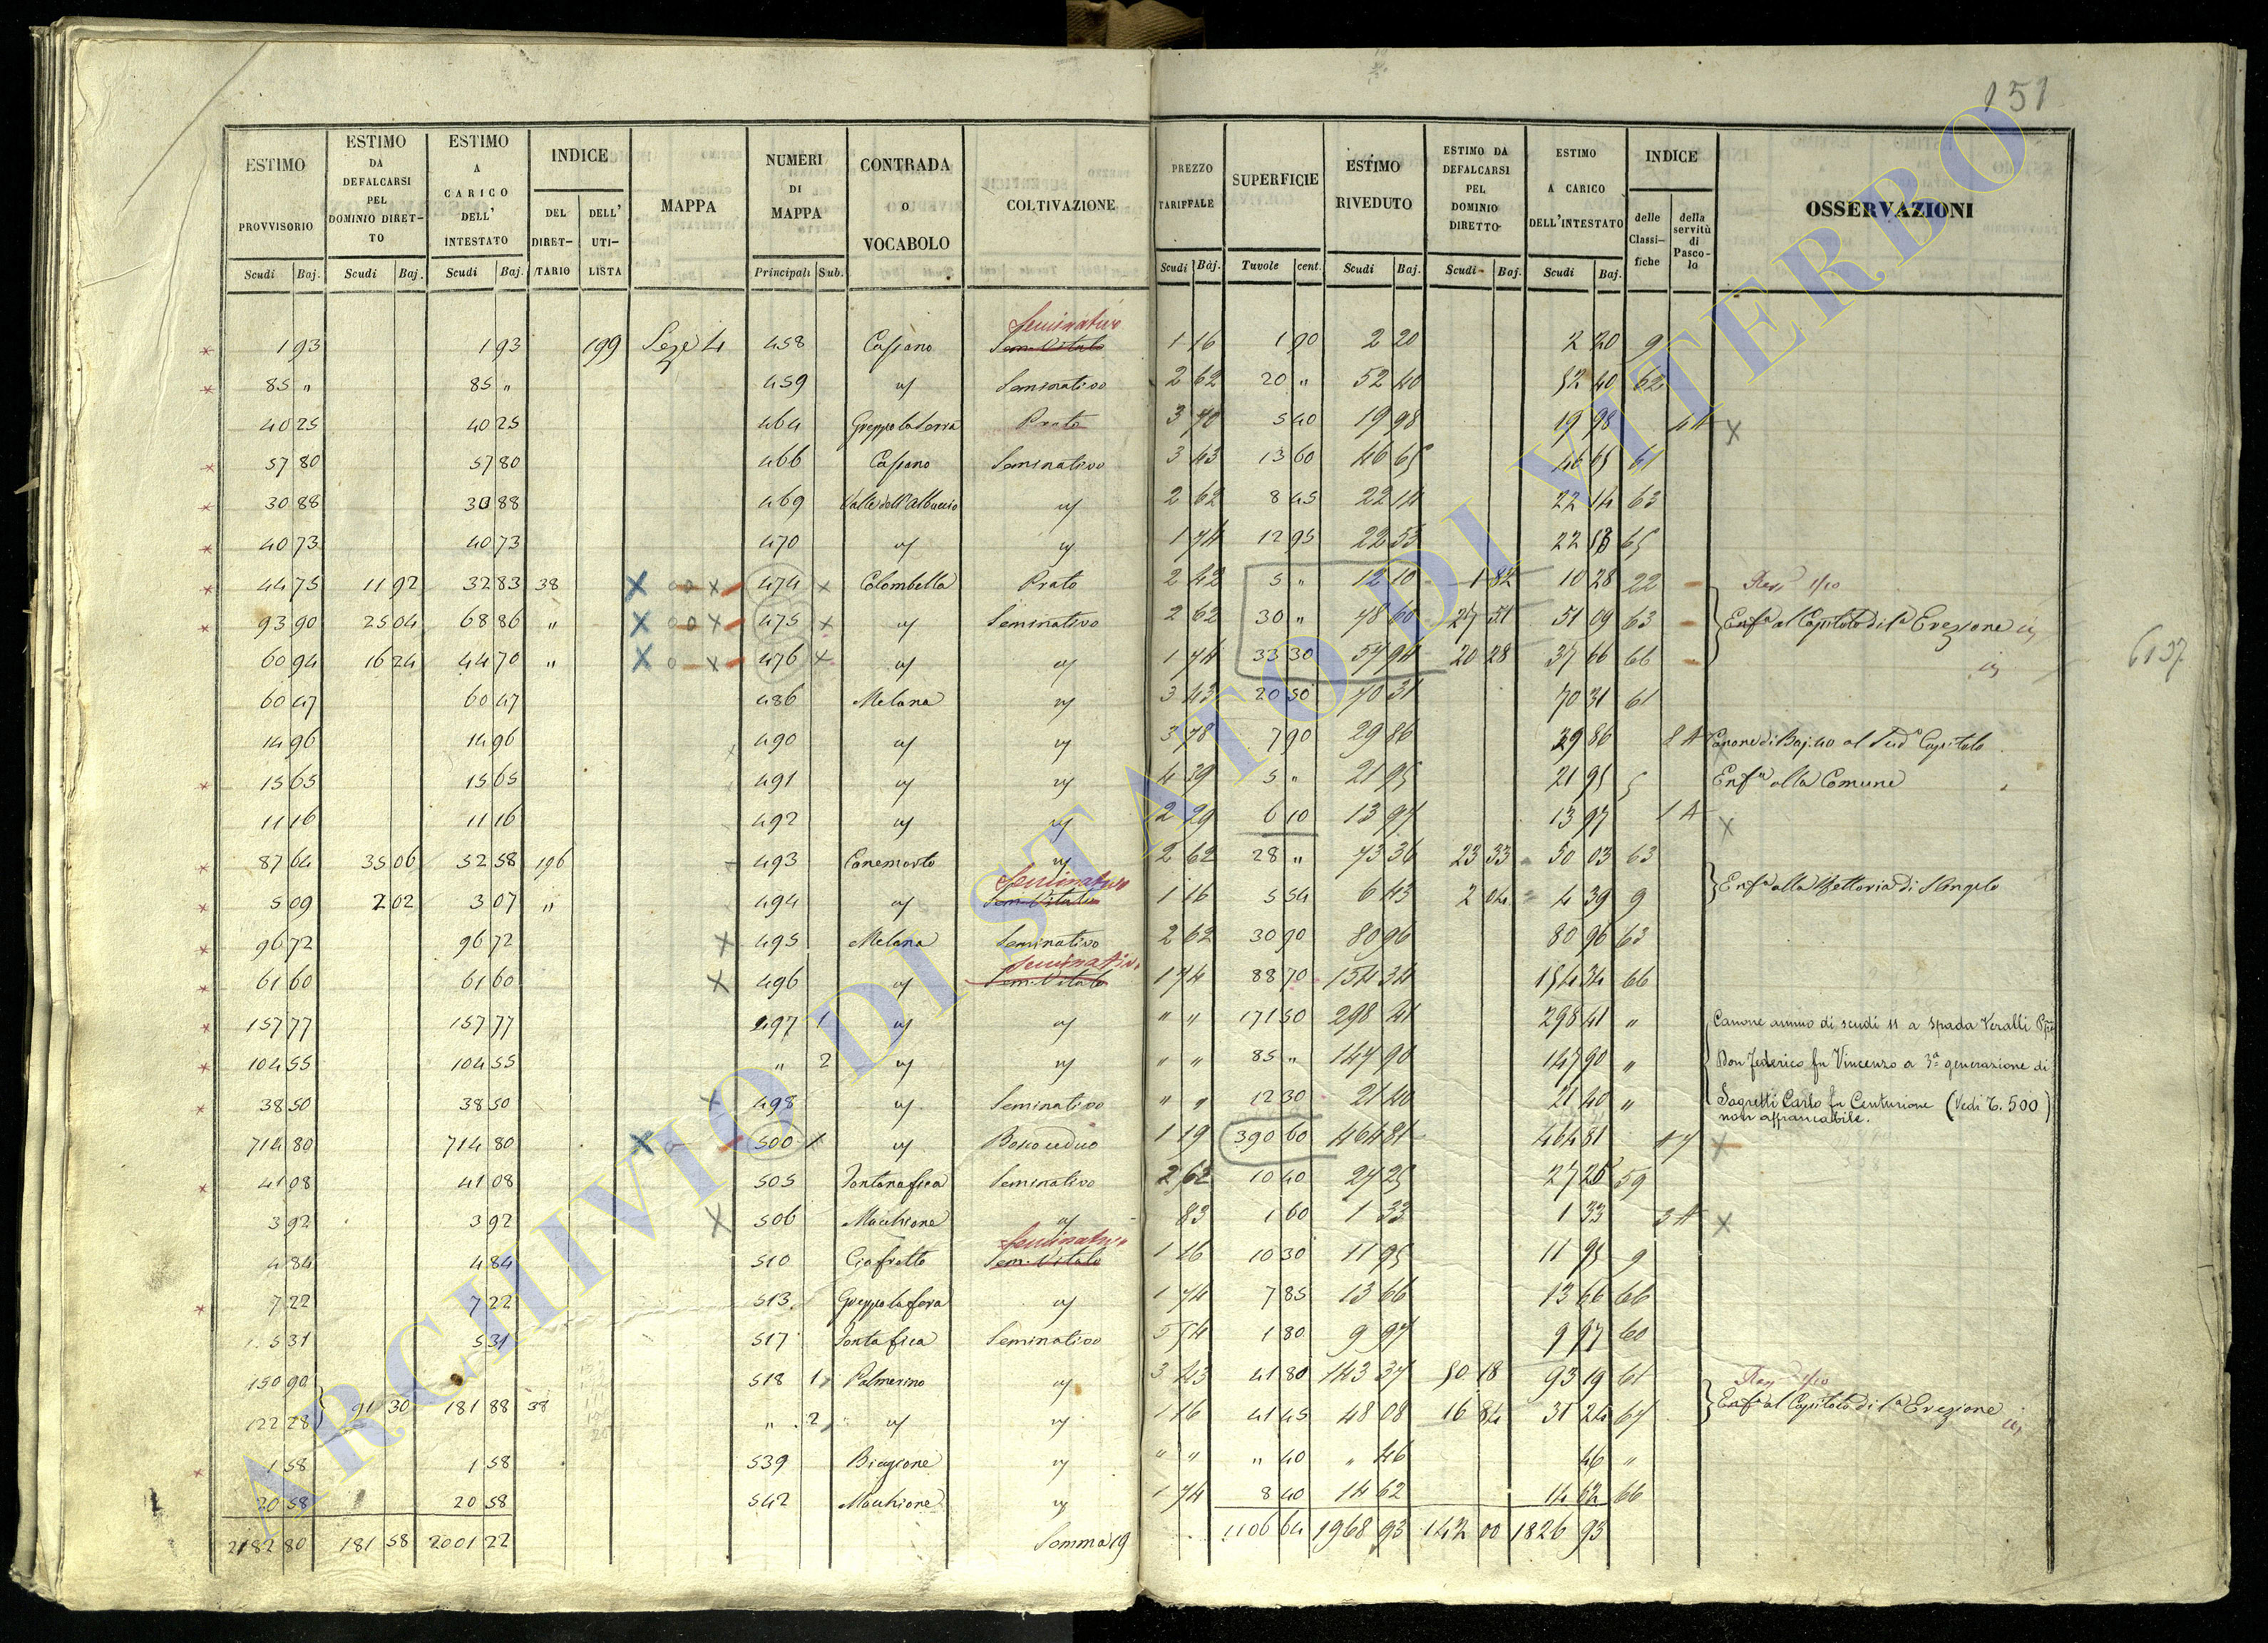 151
ESTIMO PROVVISORIO Scudi Baj. | ESTIMO DA DEFALCARSI PEL DOMINIO DIRETTO Scudi Baj. | ESTIMO A CARICO DELL' INTESTATO Scudi Baj. | INDICE DEL DIRETTARIO | DELL' UTILISTA | MAPPA | NUMERI DI MAPPA Principali Sub. | CONTRADA O VOCABOLO | COLTIVAZIONE | PREZZO TARIFFALE Scudi Baj. | SUPERFICIE Tavole cent. | ESTIMO RIVEDUTO Scudi Baj. | ESTIMO DA DEFALCARSI PEL DOMINIO DIRETTO Scudi Baj. | ESTIMO A CARICO DELL'INTESTATO Scudi Baj. | INDICE delle Classifiche | della servitù di Pascolo | OSSERVAZIONI
Seminativo
1 93 1 93 199 Seze 4 458 Cassano Sem. Vitato 1 16 1 90 2 20 2 20 9
85 " 85 " 459 " Seminativo 2 62 20 " 52 40 52 40 62
40 25 40 25 464 Prato 3 70 5 40 19 98 19 98 4A X
57 80 57 80 466 Cassano Seminativo 3 43 13 60 46 65 46 65 61
30 88 30 88 469 Valle dell'Albuccio " 2 62 8 45 22 14 22 14 63
40 73 40 73 470 " " 1 74 12 95 22 53 22 53 65
44 75 11 92 32 83 38 X 474 X Colombella Prato 2 42 5 " 12 10 1 82 10 28 22
93 90 25 04 68 86 " X 475 X " Seminativo 2 62 30 " 78 60 27 51 51 09 63 Enfa al Capitolo di Sa Erezione
60 94 16 24 44 70 " X 476 X " " 1 74 33 30 57 94 20 28 37 66 66 6137
60 47 60 47 486 Melana " 3 43 20 50 70 31 70 31 61
14 96 14 96 490 " " 3 78 7 90 29 86 29 86 2A Canone di Baj. 40 al Sudo Capitolo
15 65 15 65 491 " " 4 39 5 " 21 95 21 95 5 Enfa alla Comune
11 16 11 16 492 " " 2 29 6 10 13 97 13 97 1A X
87 64 35 06 52 58 196 493 Canemorto " 2 62 28 " 73 36 23 33 50 03 63
Seminativo
5 09 2 02 3 07 " 494 " Sem. Vitato 1 16 5 54 6 43 2 04 4 39 9 Enfa alla Rettoria di S Angelo
96 72 96 72 X 495 Melana Seminativo 2 62 30 90 80 96 80 96 63
Seminativo
61 60 61 60 X 496 " Sem. Vitato 1 74 88 70 154 34 154 34 66
157 77 157 77 497 1 " " " " 171 50 298 41 298 41 " Canone annuo di scudi 11 a Spada Veralli Ppe
104 55 104 55 " 2 " " " " 85 " 147 90 147 90 " Don Federico fu Vincenzo a 3a generazione di
38 50 38 50 X 498 " Seminativo " " 12 30 21 40 21 40 " Sagretti Carlo fu Centurione (Vedi T. 500)
non affrancabile.
714 80 714 80 X 500 X " Bosco ceduo 1 19 390 60 464 81 464 81 17 X
41 08 41 08 505 Fontanafica Seminativo 2 62 10 40 27 25 27 25 59
3 92 3 92 X 506 Macchione " 83 1 60 1 33 1 33 3A X
Seminativo
4 84 4 84 510 Ciafrette Sem. Vitato 1 16 10 30 11 95 11 95 9
7 22 7 22 513 " 1 74 7 85 13 66 13 66 66
5 31 5 31 517 Fontafica Seminativo 5 54 1 80 9 97 9 97 60
150 90 518 1 Palmerino " 3 43 41 80 143 37 50 18 93 19 61
122 28 91 30 181 88 38 " 2 " " 1 16 41 45 48 08 16 84 31 24 67 Enfa al Capitolo di Sa Erezione
1 58 1 58 539 Biagione " " " " 40 " 46 46 "
20 58 20 58 542 Macchione " 1 74 8 40 14 62 14 62 66
2182 80 181 58 2001 22 Somma 19 1106 64 1968 93 142 00 1826 93
ARCHIVIO DI STATO DI VITERBO